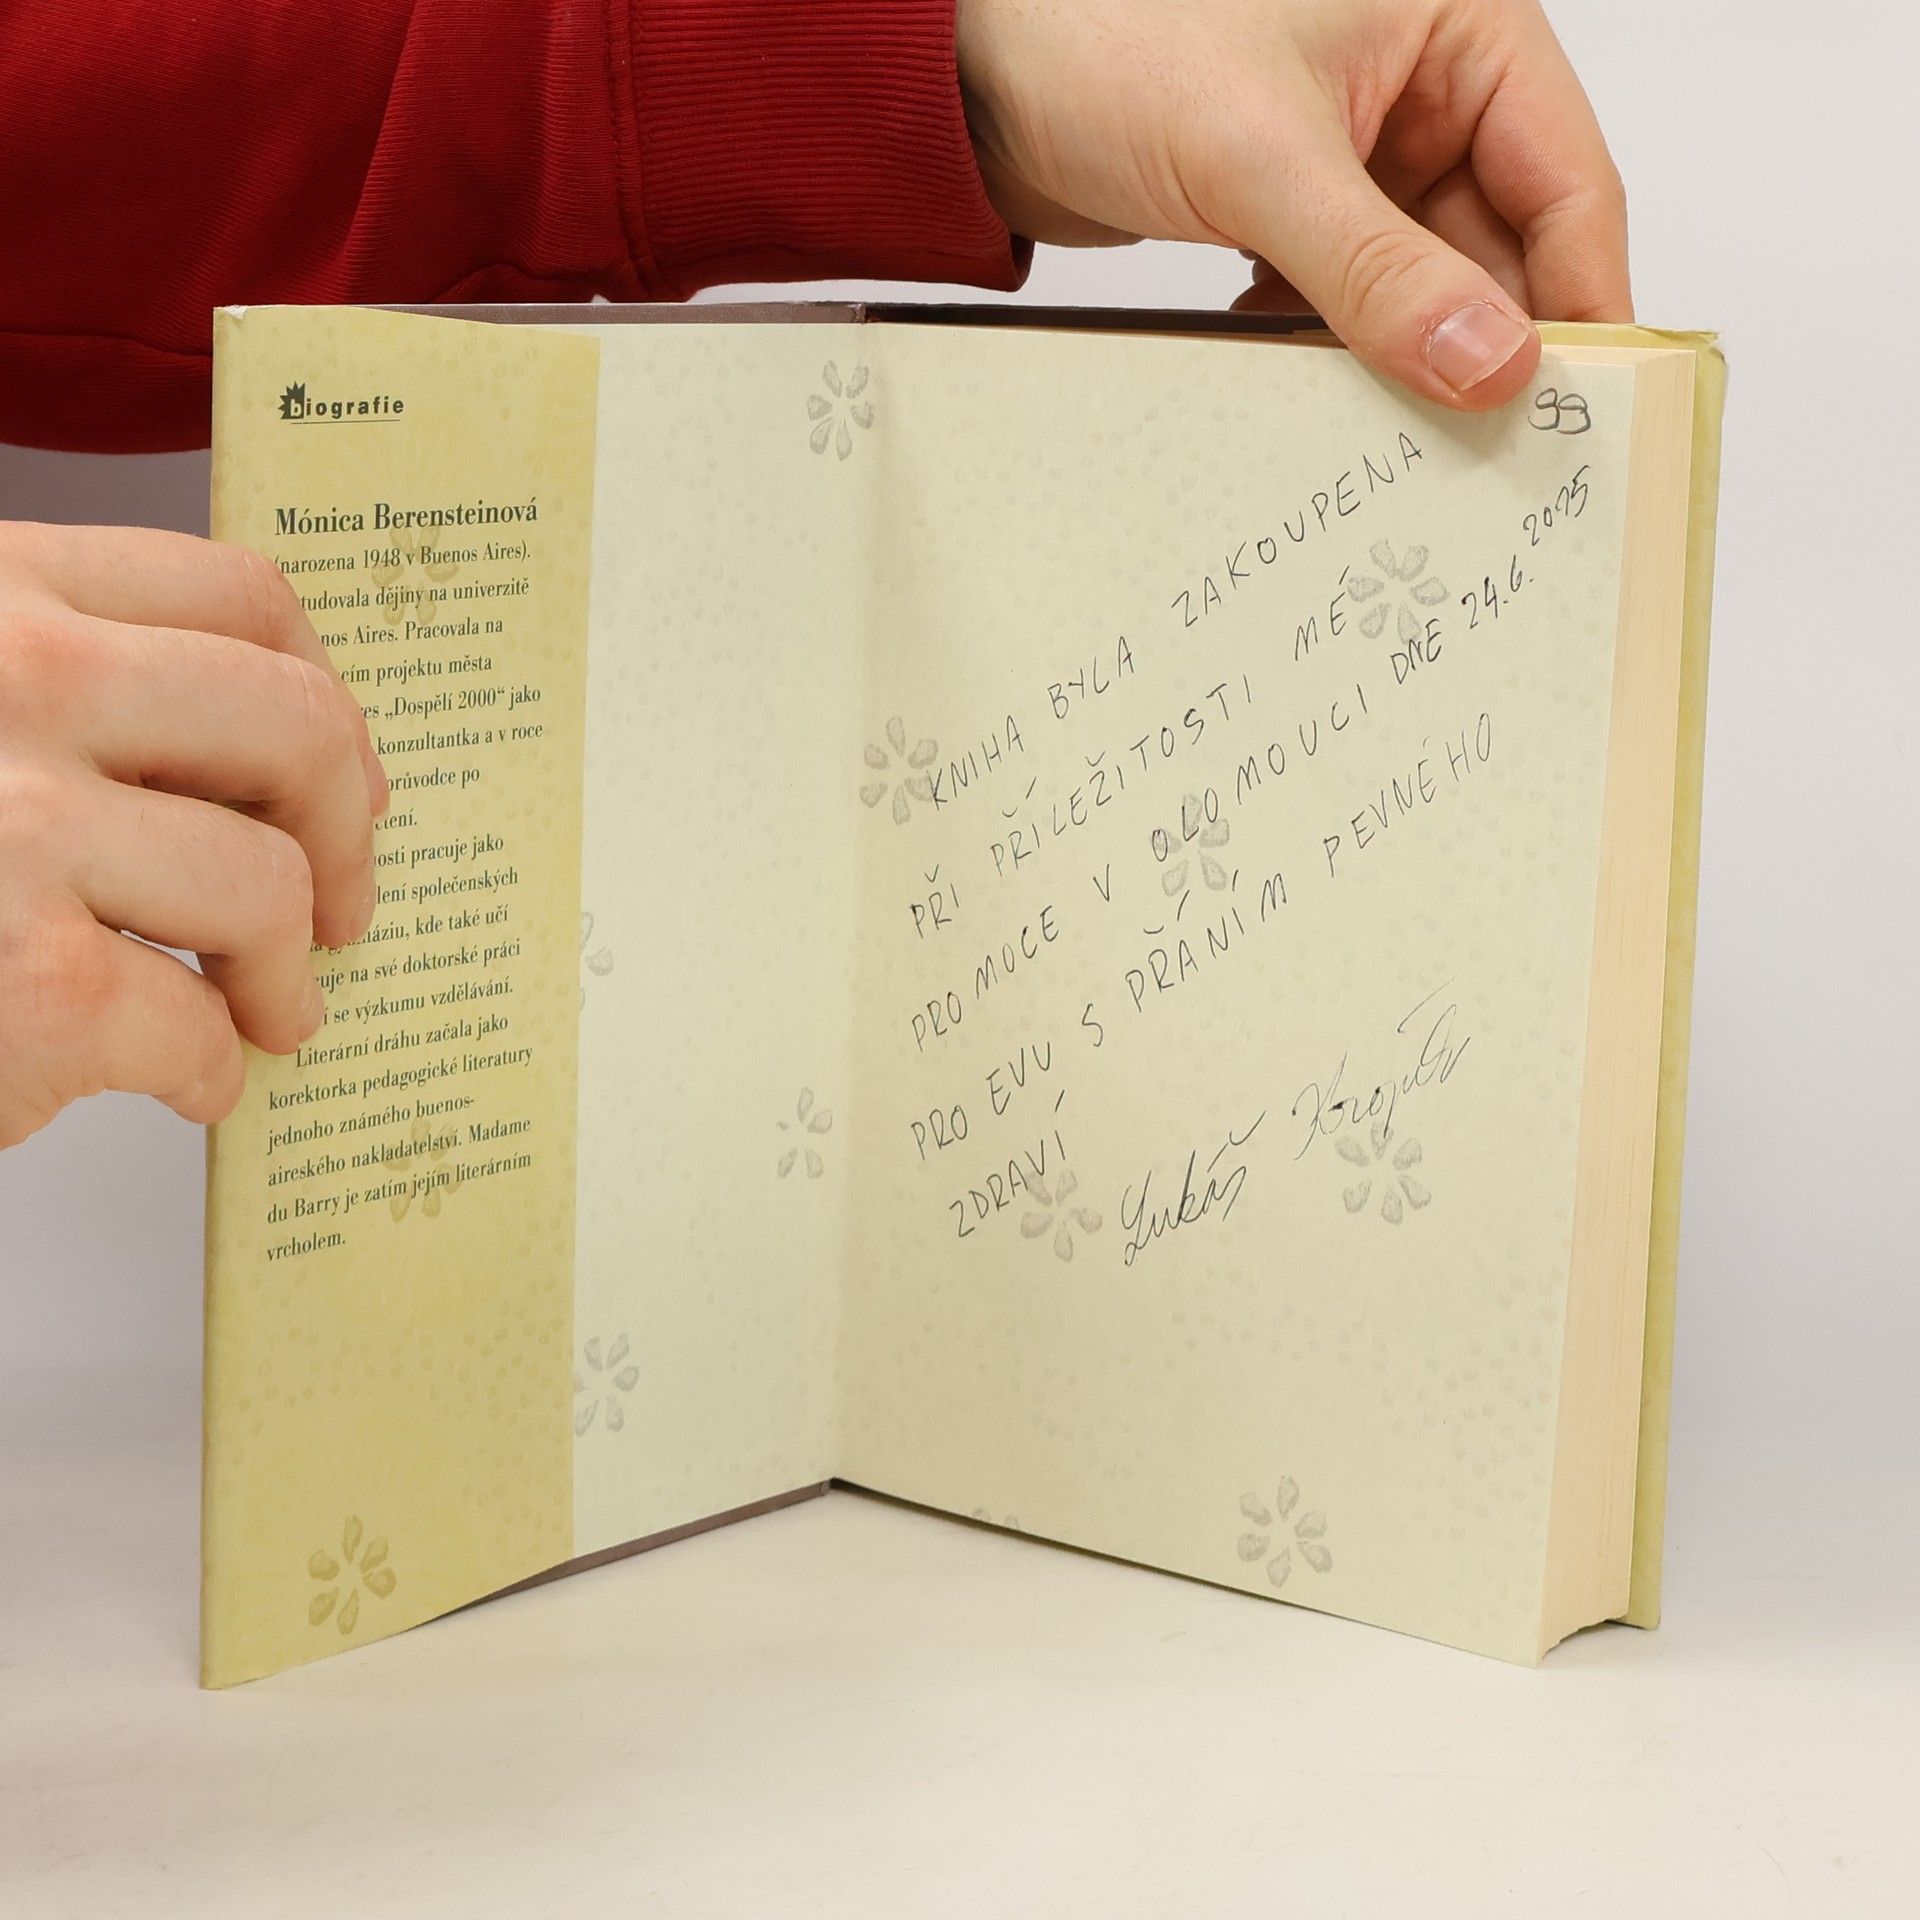 biografie
Mónica Berensteinová
(narozena 1948 v Buenos Aires).
tudovala dějiny na univerzitě
nos Aires. Pracovala na
cím projektu města
es „Dospělí 2000“ jako
konzultantka a v roce
průvodce po
čtení.
osti pracuje jako
lení společenských
na gymnáziu, kde také učí
cuje na své doktorské práci
í se výzkumu vzdělávání.
Literární dráhu začala jako
korektorka pedagogické literatury
jednoho známého buenos-
aireského nakladatelství. Madame
du Barry je zatím jejím literárním
vrcholem.
99
KNIHA BYLA ZAKOUPENA
PŘI PŘÍLEŽITOSTI MÉ
PROMOCE V OLOMOUCI DNE 24.6. 2015
PRO EVU S PŘÁNÍM PEVNÉHO
ZDRAVÍ
Lukáš